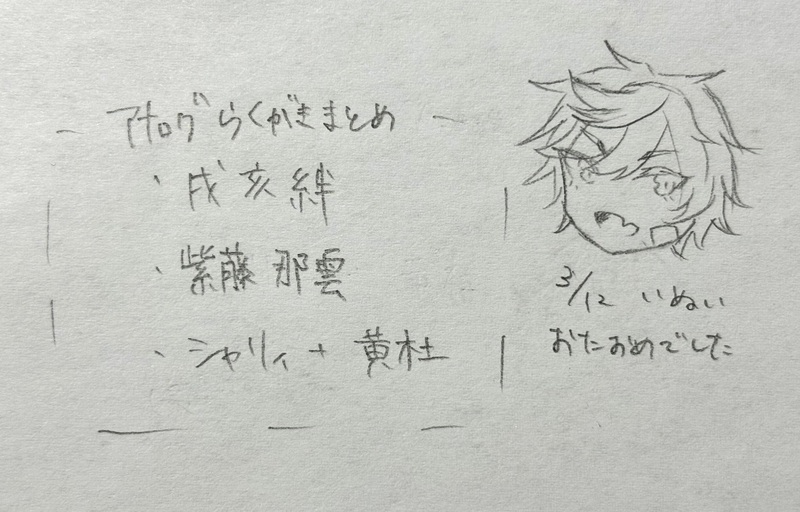 アナログらくがきまとめ
・戌亥絆
・紫藤那雲
・シャリィ+黄杜
3/12 いぬい
おたおめでした